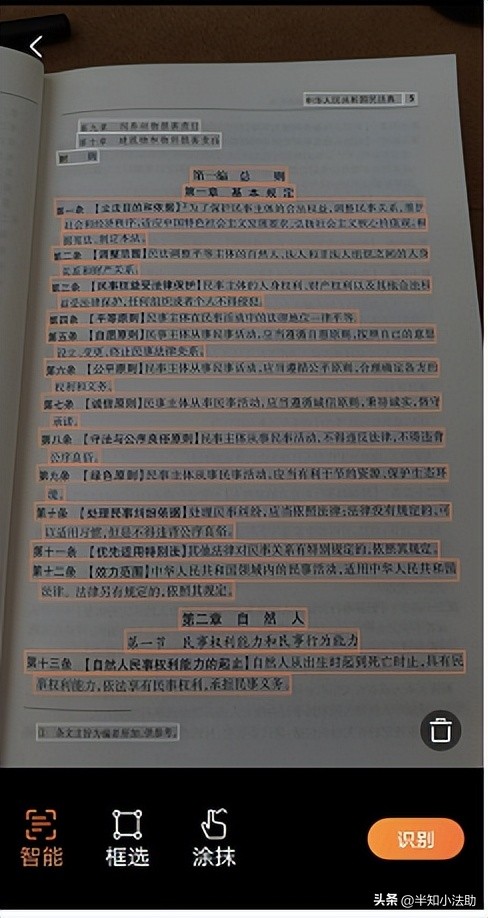 中华人民共和国民法典 5
第九章 饲养动物损害责任
第十章 建筑物和物件损害责任
附 则
第一编 总 则
第一章 基本规定
第一条 【立法目的和依据】①为了保护民事主体的合法权益,调整民事关系,维护
社会和经济秩序,适应中国特色社会主义发展要求,弘扬社会主义核心价值观,根
据宪法,制定本法。
第二条 【调整范围】民法调整平等主体的自然人、法人和非法人组织之间的人身
关系和财产关系。
第三条 【民事权益受法律保护】民事主体的人身权利、财产权利以及其他合法权
益受法律保护,任何组织或者个人不得侵犯。
第四条 【平等原则】民事主体在民事活动中的法律地位一律平等。
第五条 【自愿原则】民事主体从事民事活动,应当遵循自愿原则,按照自己的意思
设立、变更、终止民事法律关系。
第六条 【公平原则】民事主体从事民事活动,应当遵循公平原则,合理确定各方的
权利和义务。
第七条 【诚信原则】民事主体从事民事活动,应当遵循诚信原则,秉持诚实,恪守
承诺。
第八条 【守法与公序良俗原则】民事主体从事民事活动,不得违反法律,不得违背
公序良俗。
第九条 【绿色原则】民事主体从事民事活动,应当有利于节约资源、保护生态环
境。
第十条 【处理民事纠纷依据】处理民事纠纷,应当依照法律;法律没有规定的,可
以适用习惯,但是不得违背公序良俗。
第十一条 【优先适用特别法】其他法律对民事关系有特别规定的,依照其规定。
第十二条 【效力范围】中华人民共和国领域内的民事活动,适用中华人民共和国
法律。法律另有规定的,依照其规定。
第二章 自 然 人
第一节 民事权利能力和民事行为能力
第十三条 【自然人民事权利能力的起止】自然人从出生时起到死亡时止,具有民
事权利能力,依法享有民事权利,承担民事义务。
① 条文主旨为编者所加,供参考。
智能 框选 涂抹 识别
头条 @半知小法助